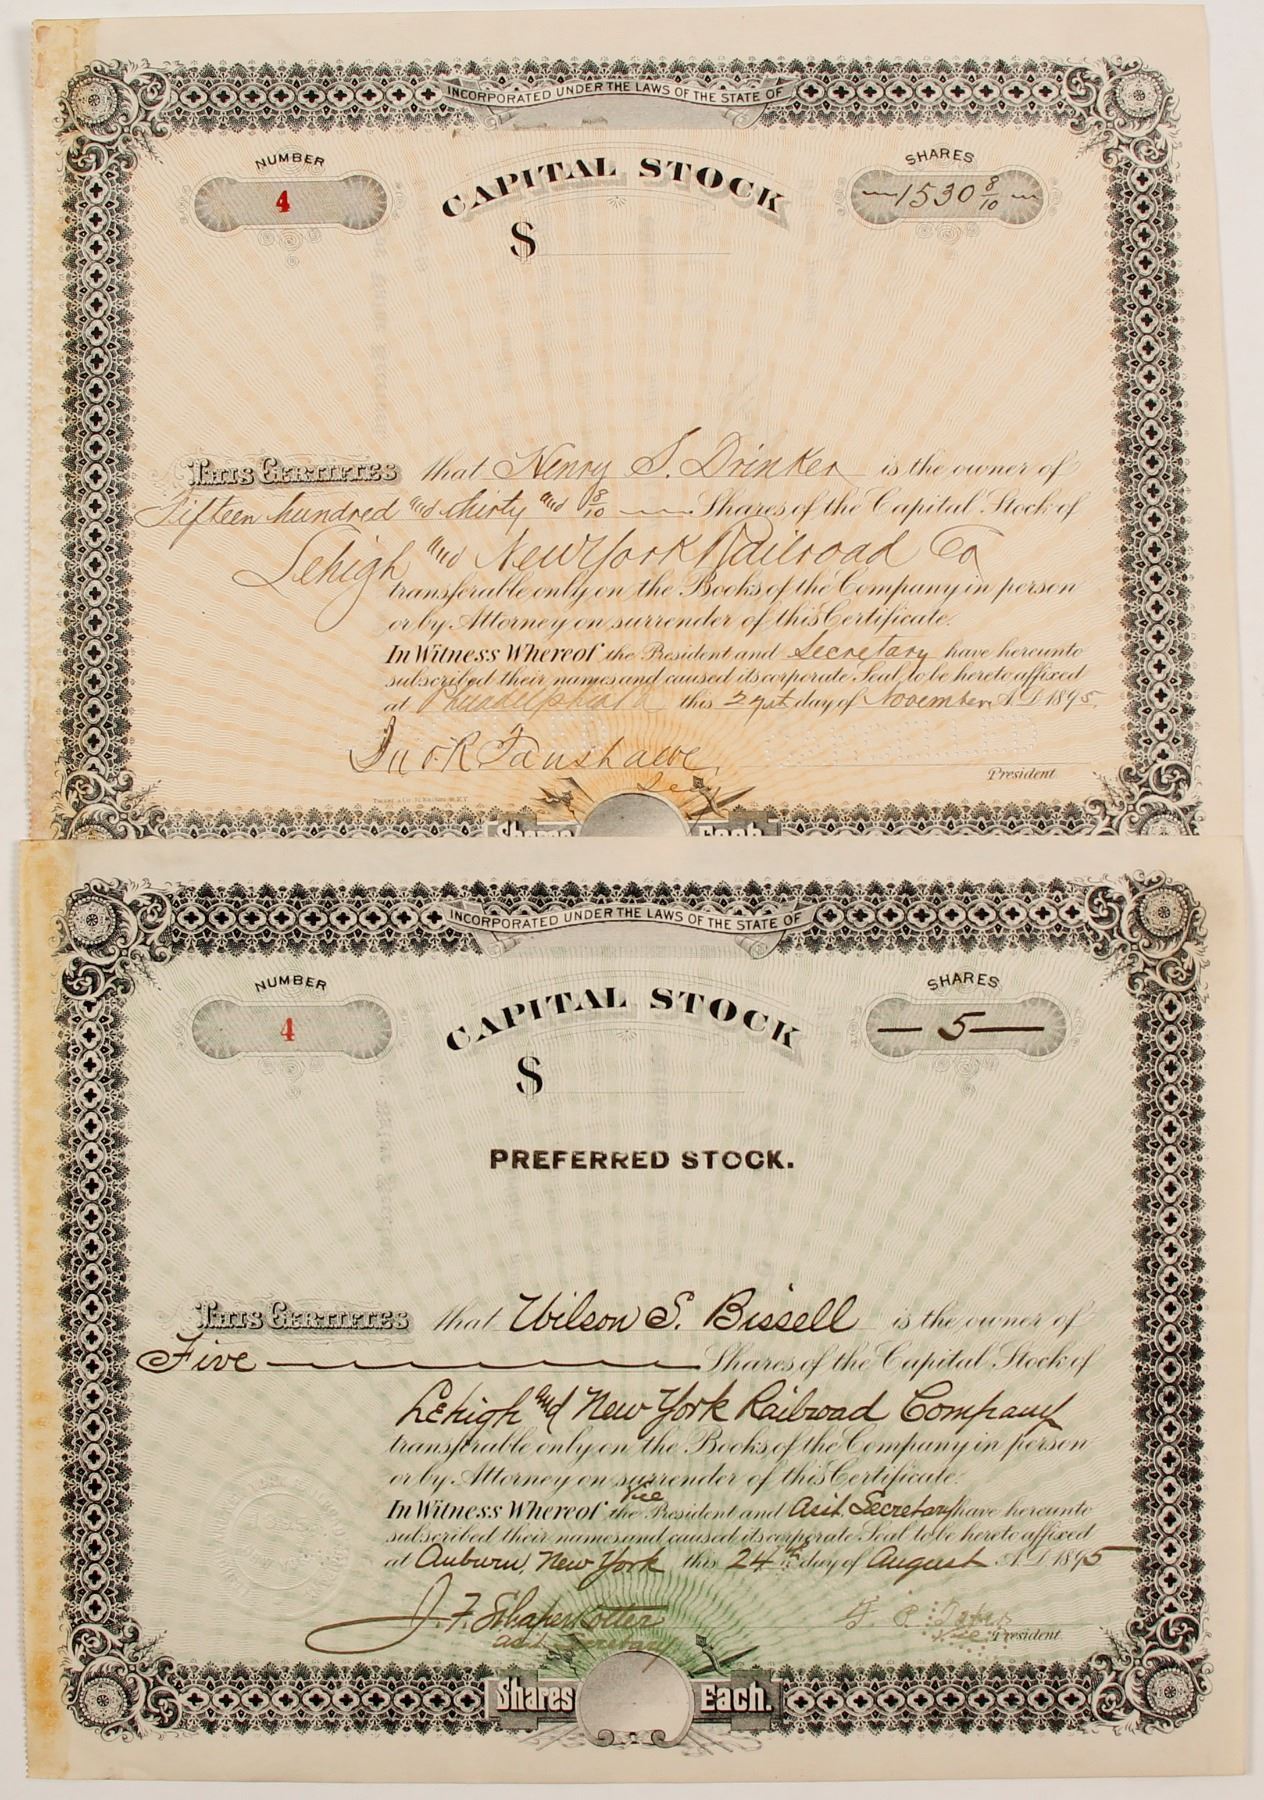 INCORPORATED UNDER THE LAWS OF THE STATE OF
NUMBER
4
CAPITAL STOCK
$
SHARES
1530 8/10
This Certifies that Henry S. Drinker is the owner of
Fifteen hundred and thirty and 8/10 Shares of the Capital Stock of
Lehigh and New York Railroad Co
transferable only on the Books of the Company in person
or by Attorney on surrender of this Certificate.
In Witness Whereof the President and Secretary have hereunto
subscribed their names and caused its corporate Seal to be hereto affixed
at Philadelphia Pa this day of November A.D. 1895.
Fanshawe
Secy
President
Shares Each.
INCORPORATED UNDER THE LAWS OF THE STATE OF
NUMBER
4
CAPITAL STOCK
$
SHARES
5
PREFERRED STOCK.
This Certifies that Wilson S. Bissell is the owner of
Five Shares of the Capital Stock of
Lehigh and New York Railroad Company
transferable only on the Books of the Company in person
or by Attorney on surrender of this Certificate.
In Witness Whereof the Vice President and Asst. Secretary have hereunto
subscribed their names and caused its corporate Seal to be hereto affixed
at Auburn, New York this 24th day of August A.D. 1895
J. F. Schaperkotter
Asst. Secretary
Vice President
Shares Each.